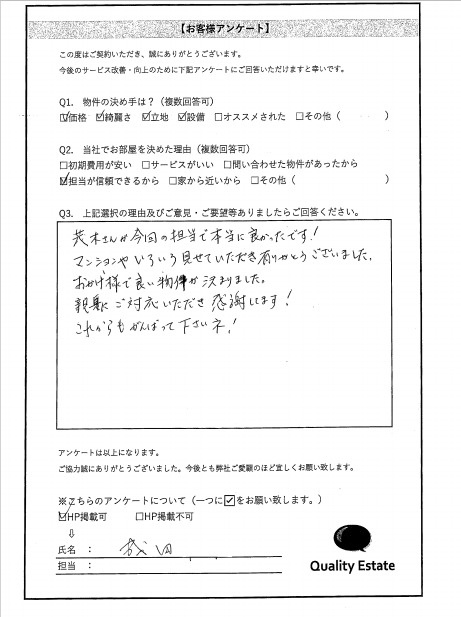 【お客様アンケート】
この度はご契約いただき、誠にありがとうございます。
今後のサービス改善・向上のために下記アンケートにご回答いただけますと幸いです。
Q1. 物件の決め手は?（複数回答可）
☑価格 ☑綺麗さ ☑立地 ☑設備 □オススメされた □その他（ ）
Q2. 当社でお部屋を決めた理由（複数回答可）
□初期費用が安い □サービスがいい □問い合わせた物件があったから
☑担当が信頼できるから □家から近いから □その他（ ）
Q3. 上記選択の理由及びご意見・ご要望等ありましたらご回答ください。
茂木さんが今回の担当で本当に良かったです!
マンションやいろいろ見せていただき有りがとうございました。
おかげ様で良い物件が決まりました。
親身にご対応いただき感謝します!
これからもがんばって下さいネ!
アンケートは以上になります。
ご協力誠にありがとうございました。今後とも弊社ご愛顧のほど宜しくお願い致します。
※こちらのアンケートについて（一つに☑をお願い致します。）
☑HP掲載可 □HP掲載不可
⇩
氏名 ：
担当 ：
Quality Estate